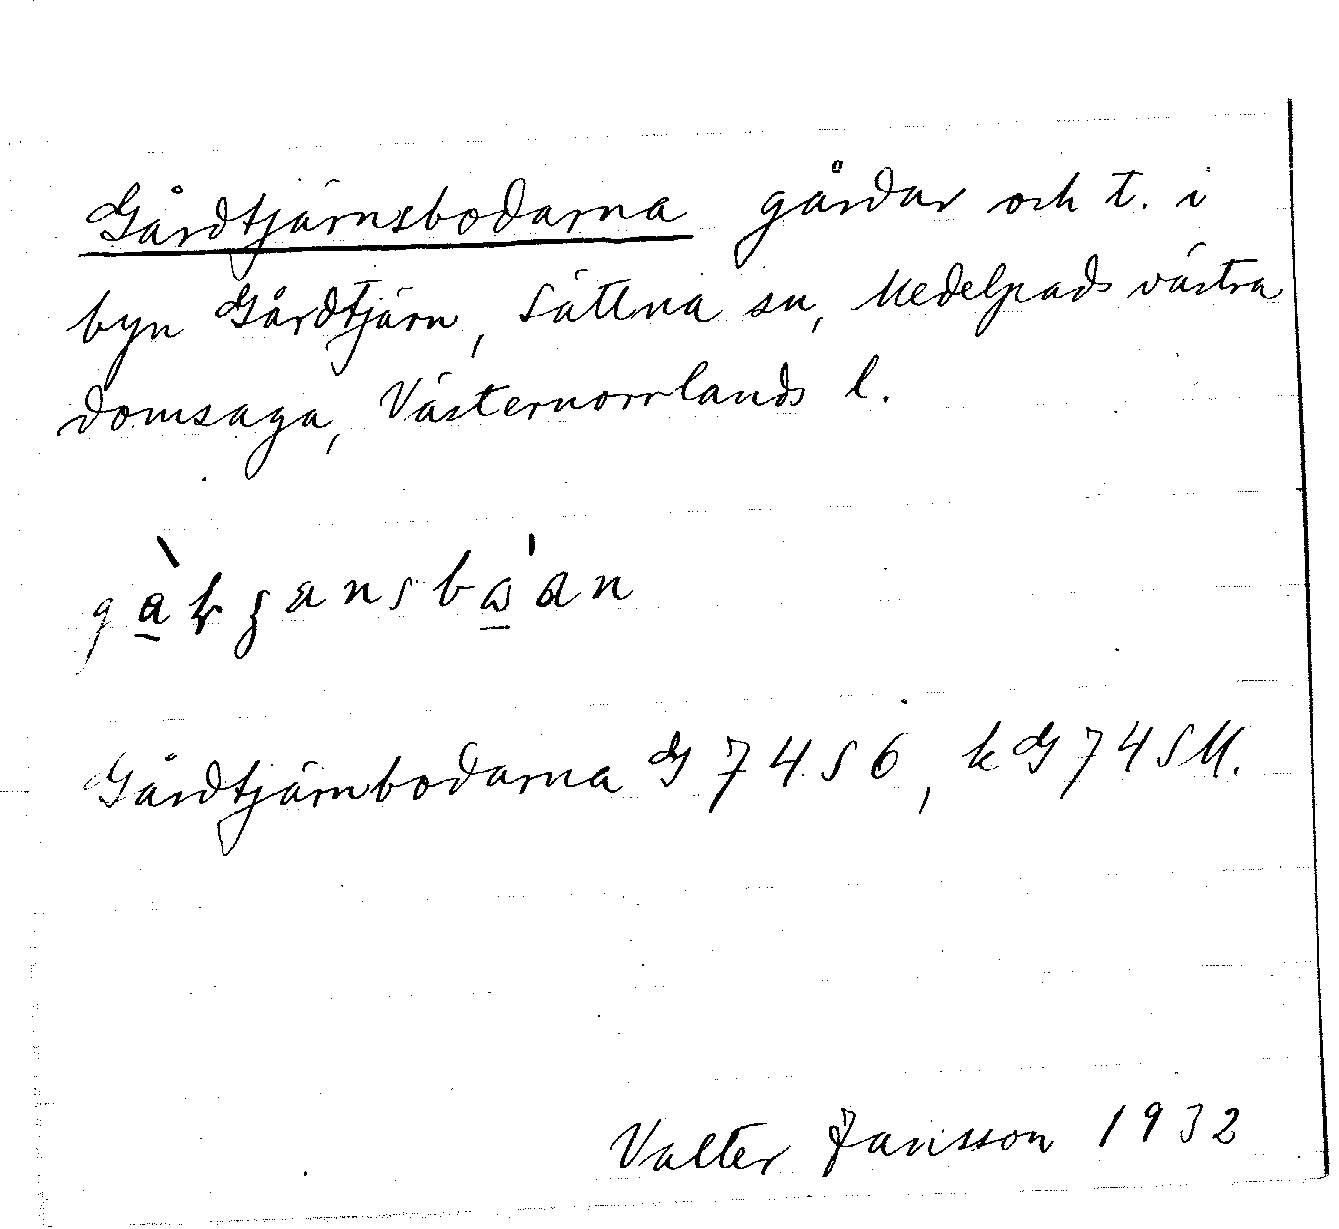 Gårdtjärnsbodarna gårdar och t. i
byn Gårdtjärn, Sättna sn, Medelpads västra
domsaga, Västernorrlands l.
Gårdtjärnbodarna G 7456, kG 745 M.
Valter Jansson 1932